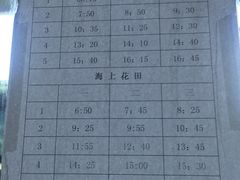 2 7:50 8:30 8:50
3 10:35 11:25 12:10
4 13:20 14:10 14:40
5 15:40 16:15 16:45
海上花田
一 二 三
1 6:50 7:45 8:25
2 9:25 9:55 10:45
3 11:55 12:40 13:45
4 14:25 15:00 15:30